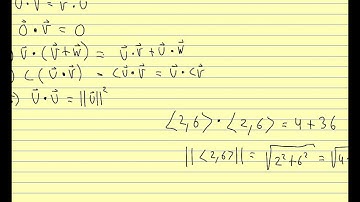 u⃗ · v⃗ = v⃗ · u⃗
0⃗ · v⃗ = 0
u⃗ · (v⃗ + w⃗) = u⃗ · v⃗ + u⃗ · w⃗
) c(u⃗ · v⃗) = cu⃗ · v⃗ = u⃗ · cv⃗
) u⃗ · u⃗ = ||u⃗||²
⟨2,6⟩ · ⟨2,6⟩ = 4 + 36
||⟨2,6⟩|| = √(2² + 6²) = √4